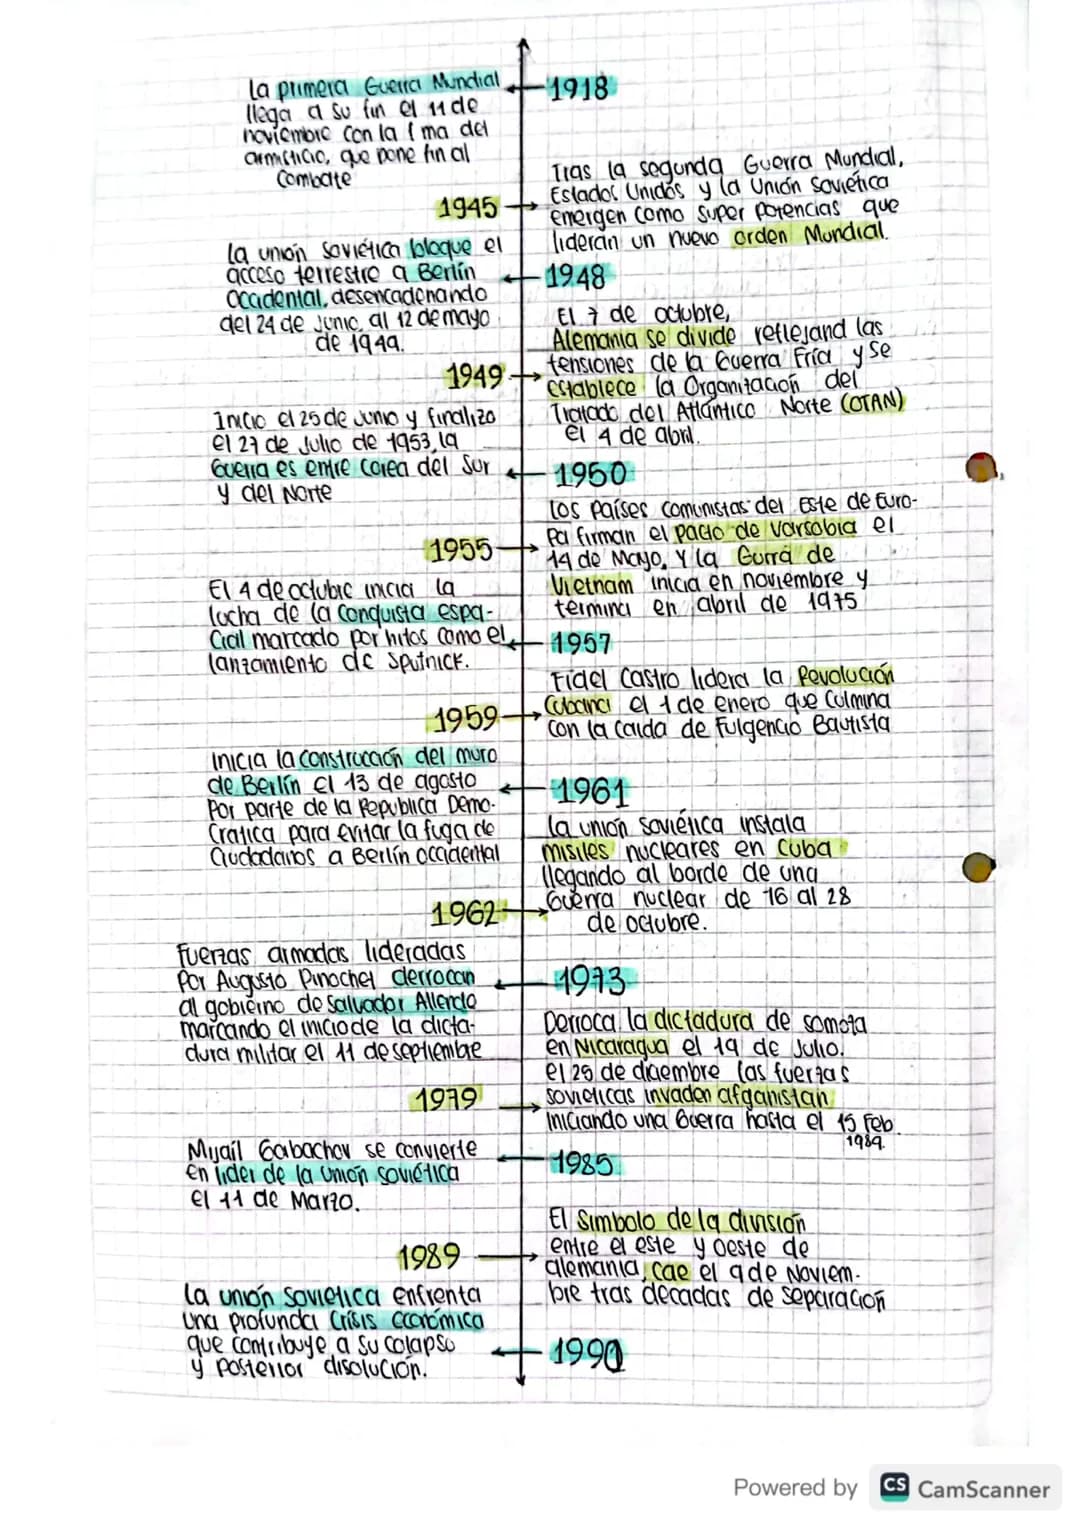 La primera Guerra Mundial
llega a su fin el 11 de
noviembre con la f ma del
armisticio, que pone fin al
Combate
1918
Tras la segunda Guerra Mundial,
Estados Unidos y la Unión Soviética
emergen como super potencias que
lideran un nuevo orden Mundial.
1945
La unión soviética bloque el
acceso terrestre a Berlín
Occidental, desencadenando
del 24 de junio, al 12 de mayo
de 1949.
1948
El 7 de octubre,
Alemania se divide reflejand las
tensiones de la Guerra Fría y se
establece la Organización del
Tratado del Atlántico Norte (OTAN)
el 4 de abril.
1949
Inicio el 25 de Junio y finalizo
el 27 de Julio de 1953, la
Guerra es entre Corea del Sur
y del Norte
1950
Los Países comunistas del Este de Euro-
Pa firman el pacto de varsobia el
14 de Mayo, Y la Gurra de
Vietnam inicia en noviembre y
termina en abril de 1975
1955
El 4 de octubre inicia la
lucha de la conquista espa-
cial marcado por hitos como el
lanzamiento de Sputnick.
1957
Fidel Castro lidera la Revolución
Cubana el 1 de enero que Culmina
con la caida de Fulgencio Bautista
1959
Inicia la construcción del muro
de Berlín el 13 de agosto
Por parte de la Republica Demo-
Cratica para evitar la fuga de
Ciudadanos a Berlín occidental
1961
La unión Soviética instala
misiles nucleares en Cuba
llegando al borde de una
Guerra nuclear de 16 al 28
de octubre.
1962
Fuerzas armadas lideradas
Por Augusto Pinochet derrocan
al gobierno de Salvador Allende
marcando el inicio de la dicta-
dura militar el 11 de septiembre
1973
Derroca la dictadura de somoza
en Nicaragua el 19 de Julio.
el 25 de diciembre las fuerzas
sovieticas invaden afganistan
Iniciando una Guerra hasta el 15 Feb.
1989
1979
Mijaíl Gorbachov se convierte
en lider de la unión soviética
el 11 de Marzo.
1985
El Simbolo de la división
entre el este y oeste de
alemania, cae el 9 de Noviem-
bre tras decadas de separación
1989
La unión Sovietica enfrenta
una profunda Crisis económica
que contribuye a su colapso
y posterior disolución.
1990
Powered by CS CamScanner